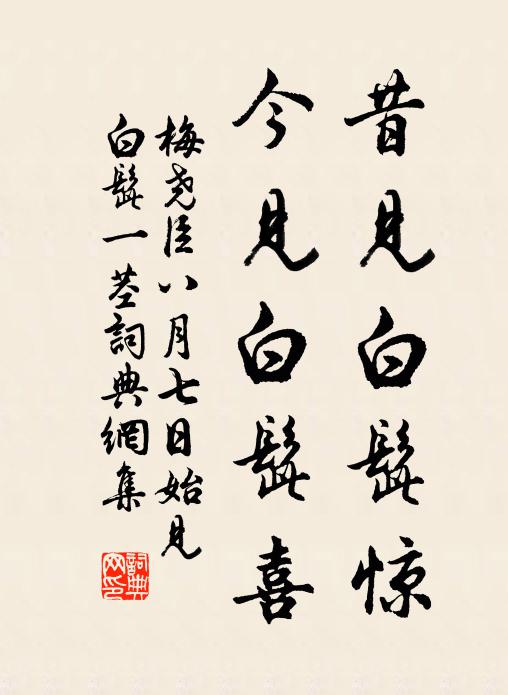 昔見白髭惊
今見白髭喜
梅堯臣八月七日始見
白髭一莖詞典網集
詞典网印